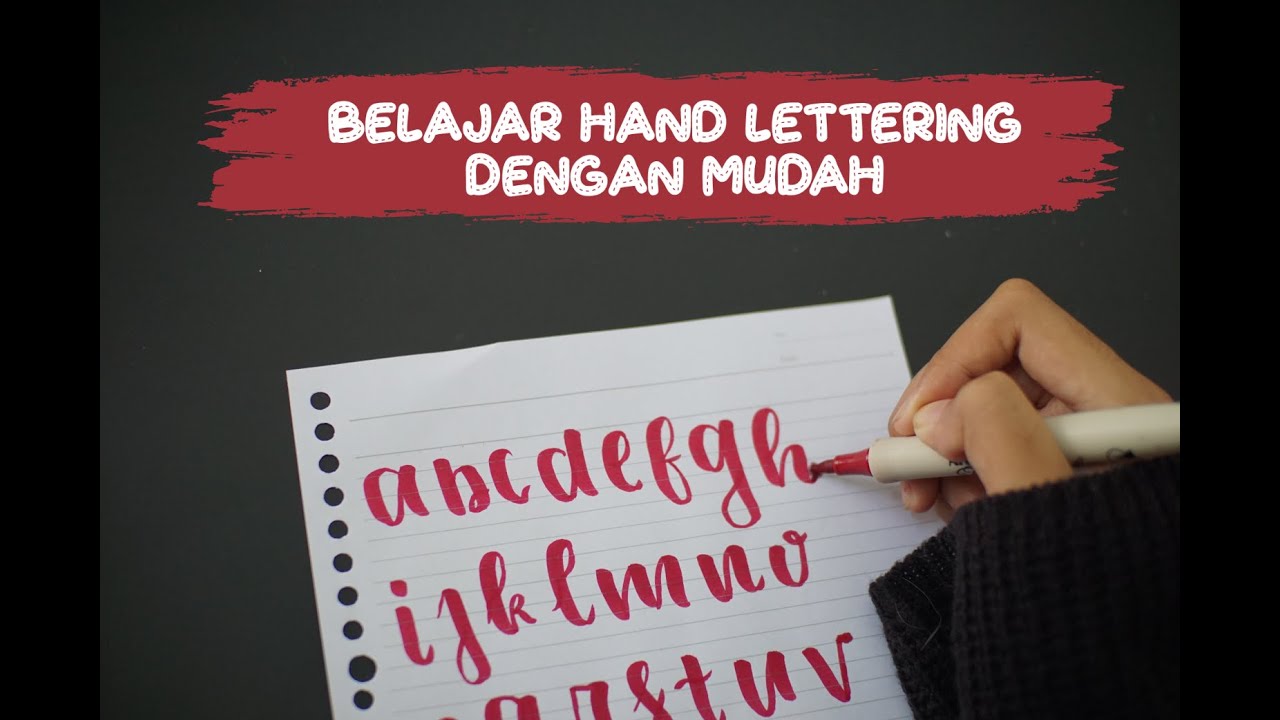 BELAJAR HAND LETTERING
DENGAN MUDAH
abcdefgh
ijklmno
pqrstuv